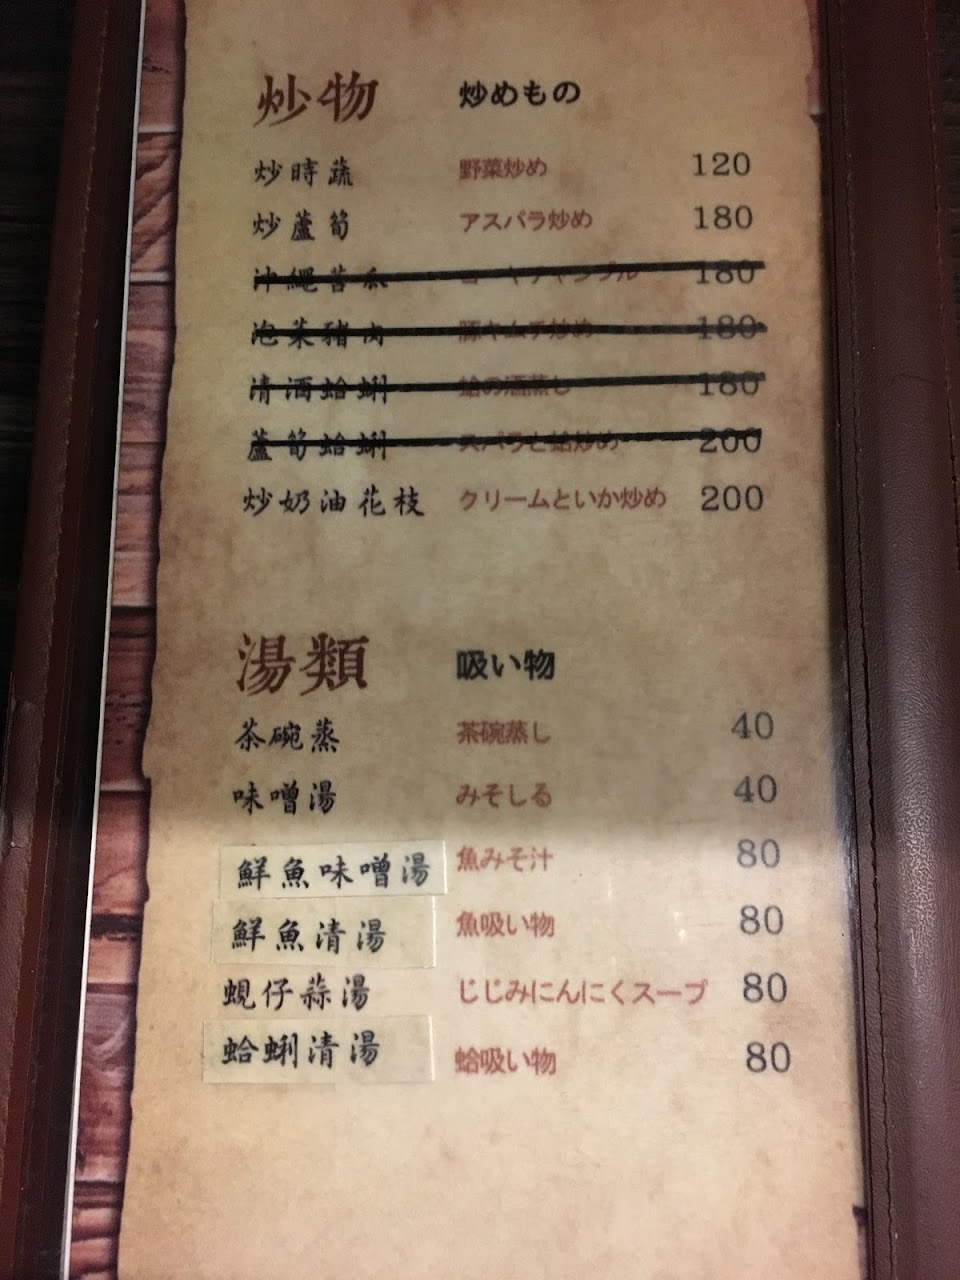 炒物 炒めもの
炒時蔬 野菜炒め 120
炒蘆筍 アスパラ炒め 180
沖繩苦瓜 180
泡菜豬肉 豚キムチ炒め 180
清酒蛤蜊 蛤の酒蒸し 180
蘆筍蛤蜊 スパラと蛤炒め 200
炒奶油花枝 クリームといか炒め 200
湯類 吸い物
茶碗蒸 茶碗蒸し 40
味噌湯 みそしる 40
鮮魚味噌湯 魚みそ汁 80
鮮魚清湯 魚吸い物 80
蜆仔蒜湯 じじみにんにくスープ 80
蛤蜊清湯 蛤吸い物 80